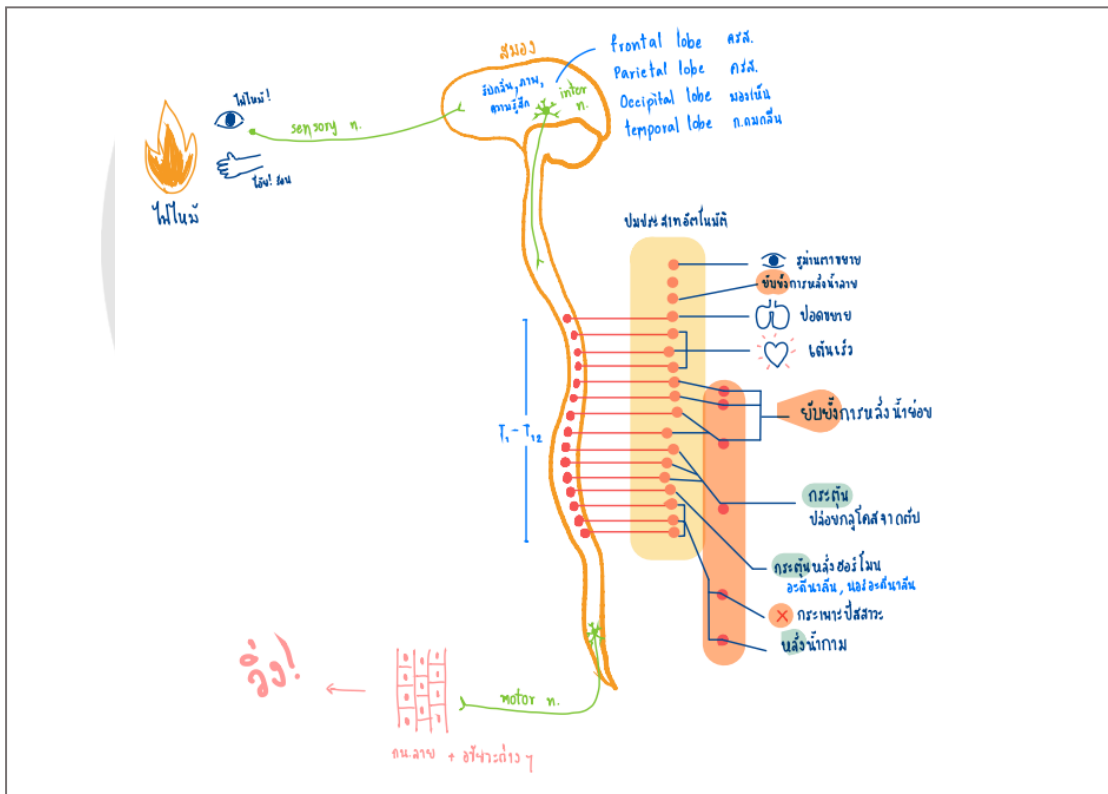 สมอง
รับกลิ่น, ภาพ,
ความรู้สึก
inter
n.
frontal lobe ครส.
Parietal lobe ครส.
Occipital lobe มองเห็น
temporal lobe ก.ดมกลิ่น
ไฟไหม้!
sensory n.
โอ๊ย! ร้อน
ไฟไหม้
ปมประสาทอัตโนมัติ
รูม่านตาขยาย
ยับยั้งการหลั่งน้ำลาย
ปอดขยาย
เต้นเร็ว
T₁ - T₁₂
ยับยั้งการหลั่งน้ำย่อย
กระตุ้น
ปล่อยกลูโคสจากตับ
กระตุ้นหลั่งฮอร์โมน
อะดีนาลีน, นอร์อะดีนาลีน
กระเพาะปัสสาวะ
หลั่งน้ำกาม
วิ่ง!
motor n.
กน.ลาย + อวัยวะต่างๆ